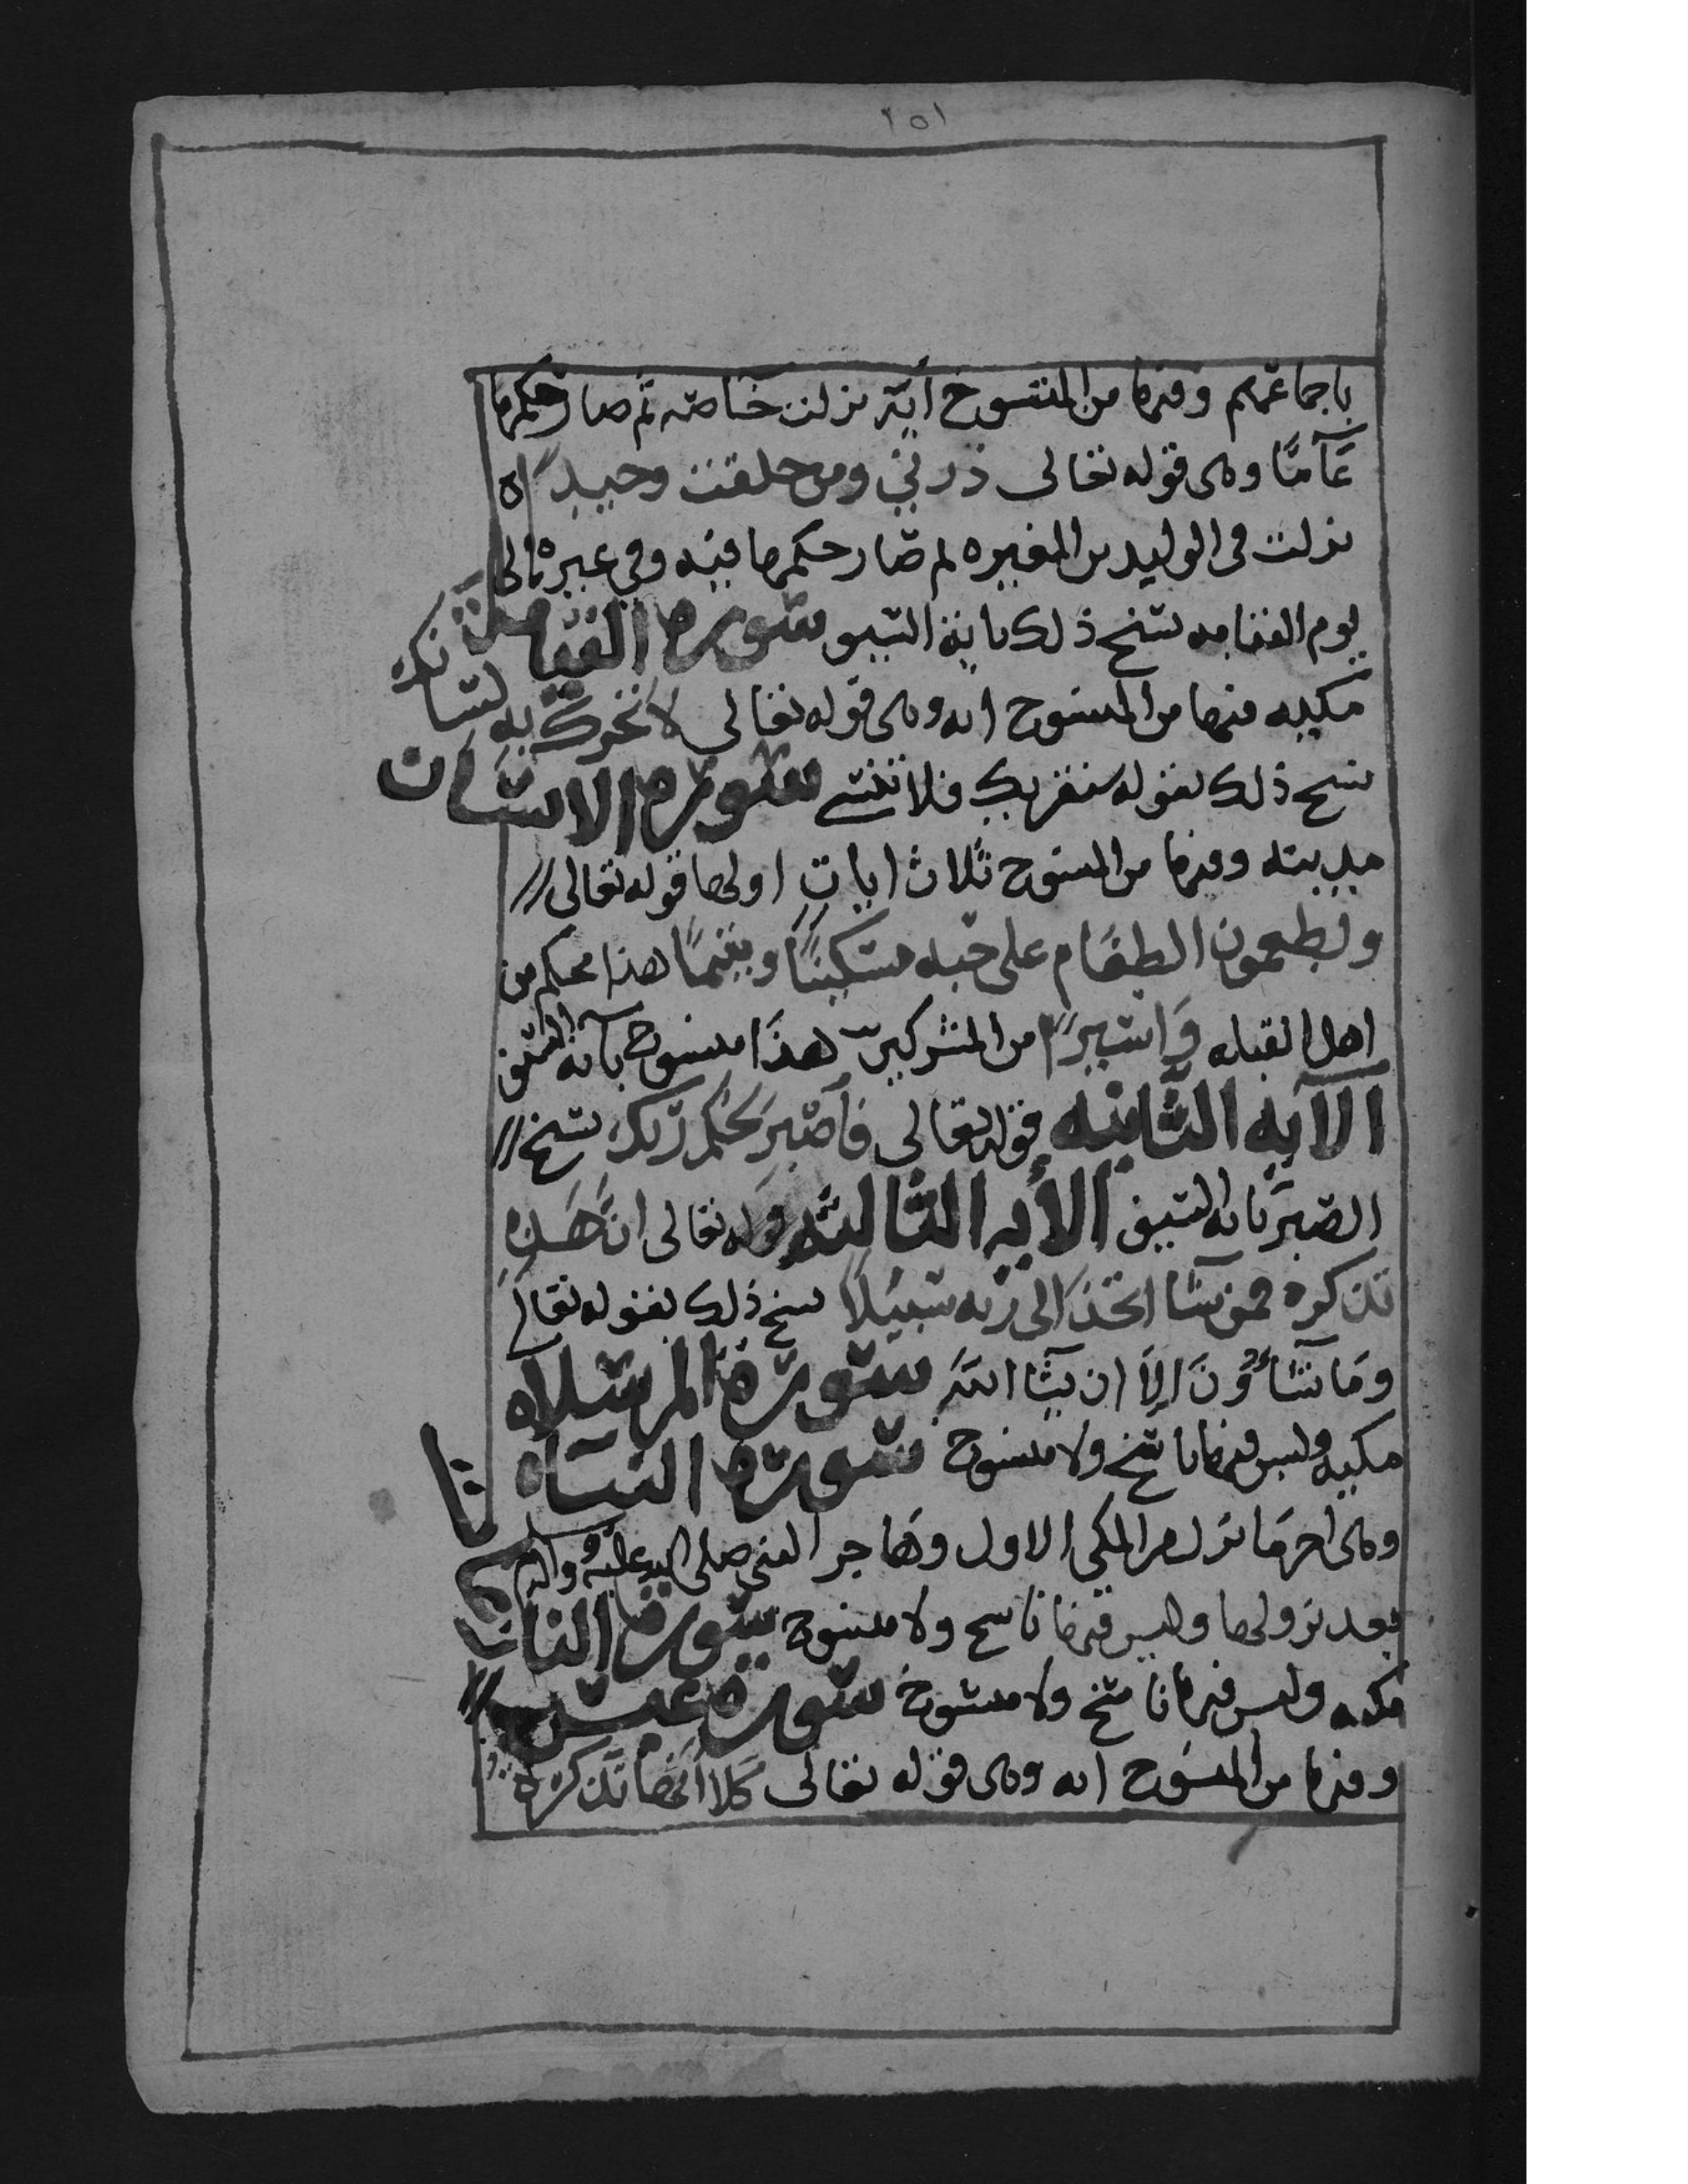 ١٥١
باجماعهم وفيها من المنسوخ أية نزلت خاصه ثم صار حكمها
عآمّا وهى قوله تعالى ذرني ومن خلقت وحيداً ه
نزلت فى الوليد بن المغيره ثم صار حكمها فيه وفي غيره الى
يوم القيامه نسخ ذلك باية السيف سورة القيامة
مكيه فيها من المنسوخ ايه وهى قوله تعالى لا تحرك به لسانك
نسخ ذلك بقوله سنقريك فلا تنسى سورة الانسان
مدينه وفيها من المنسوخ ثلاث ايات اولها قوله تعالى
ويطعمون الطعام على حبه مسكيناً ويتيماً هذا محكم من
اهل القبله وَاسيراً من المشركين هذا منسوخ بآية السيف
الآيه الثانيه قوله تعالى فاَصبر لحكم ربك نسخ
الصبر بايه السيف الأيه الثالثه قوله تعالى انّ هذه
تذكره فمن شآ اتخذ الى ربه سبيلاً نسخ ذلك بقوله تعالى
ومَا تشآؤن الاّ ان يشآ الله سورة المرسلاه
مكيه وليس فيها ناسخ ولا منسوخ سورة النبأ
وهى اخر ما نزل من المكي الاول وهاجر النبى صلى الله عليه وآله وسلم
بعد نزولها وليس فيها ناسخ ولا منسوخ سورة النازعات
مكيه وليس فيها ناسخ ولا منسوخ سورة عبس
وفيها من المنسوخ ايه وهى قوله تعالى كلا انها تذكره